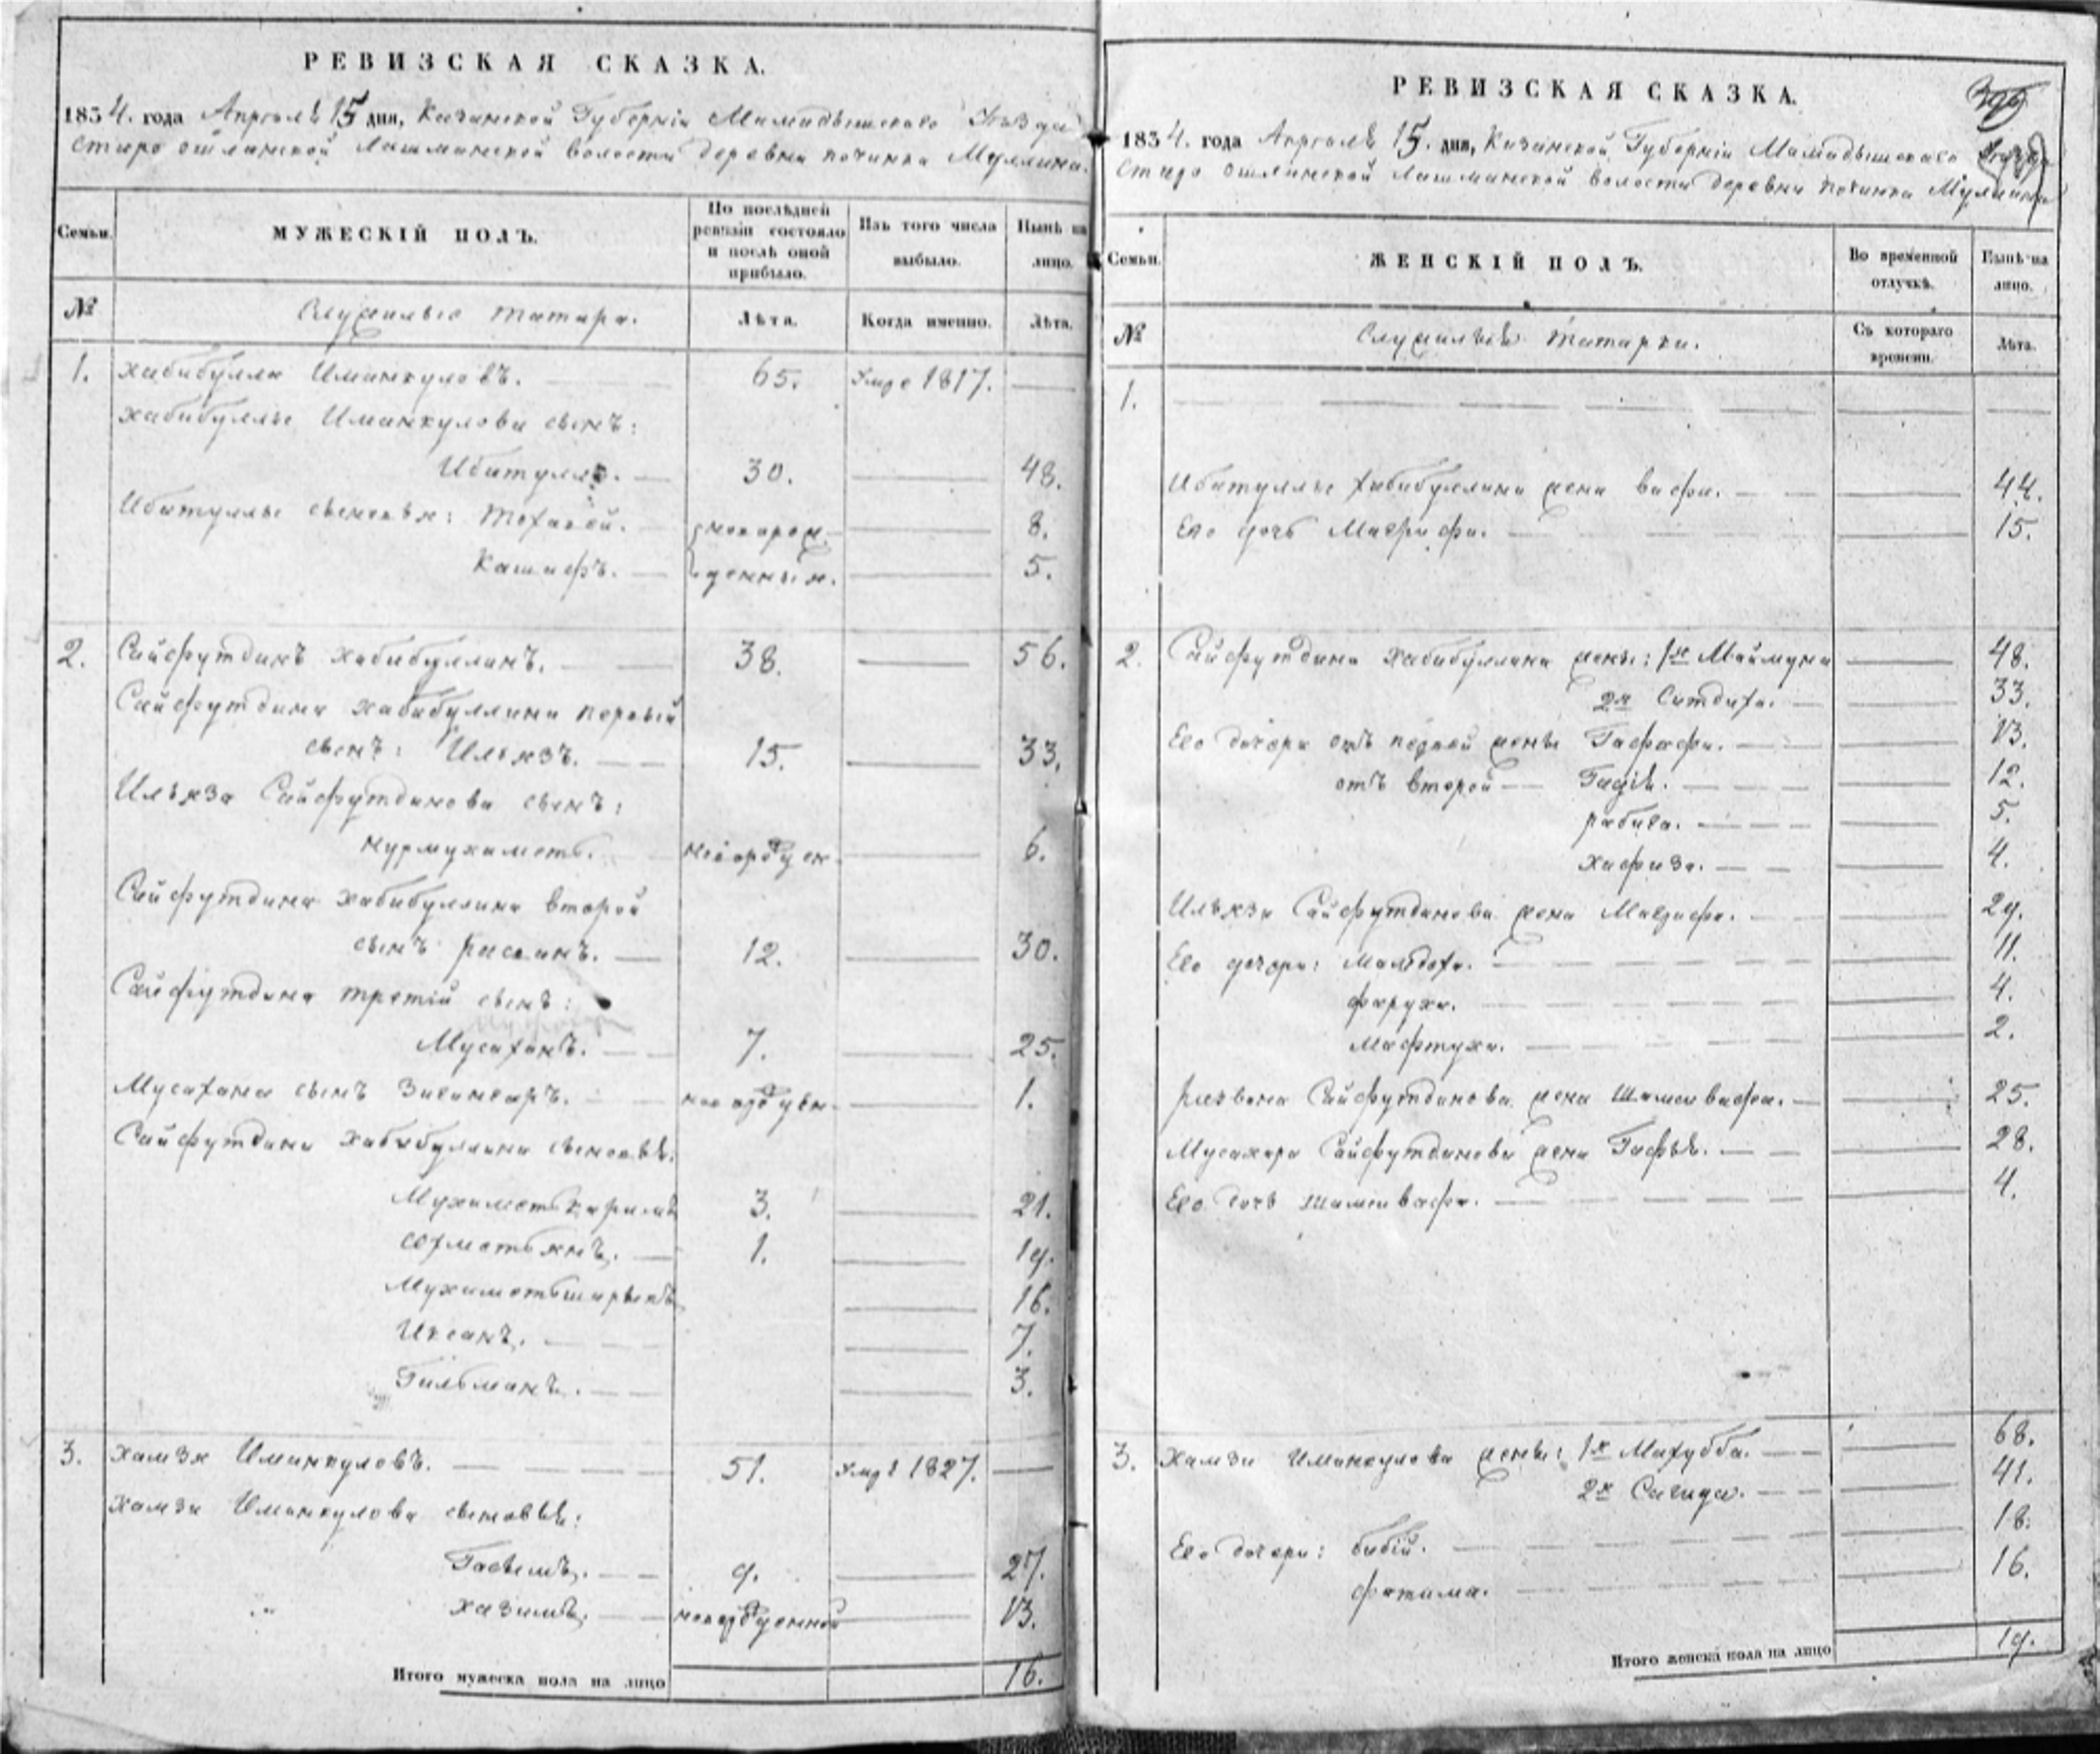 РЕВИЗСКАЯ СКАЗКА.
1834. года Апреля 15 дня, Казанской Губерніи Мамадышскаго Уѣзда
Старо ошлинской Лашманской волости деревни починка Муллина.
Семьи.
МУЖЕСКІЙ ПОЛЪ.
По послѣдней ревизіи состояло и послѣ оной прибыло.
Изъ того числа выбыло.
Нынѣ на лицо.
№
Служилые татара.
Лѣта.
Когда именно.
Лѣта.
1. Хабибулла Иманкуловъ. 65. Умре 1817.
Хабибуллы Иманкулова сынъ:
Ибатулла. 30. 48.
Ибатуллы сыновья: 8.
Кашафъ. новорожденныя. 5.
2. Сайфутдинъ Хабибуллинъ. 38. 56.
Сайфутдина Хабибуллина первый
сынъ: Ильязъ. 15. 33.
Ильяза Сайфутдинова сынъ:
Нурмухаметъ. новорожден. 6.
Сайфутдина Хабибуллина второй
сынъ 12. 30.
Сайфутдина третій сынъ:
7. 25.
сынъ новорожден. 1.
Сайфутдина Хабибуллина сыновья:
Мухаметькаримъ 3. 21.
1. 19.
Мухаметьшарыпъ 16.
Иксанъ. 7.
Гильманъ. 3.
3. Хамза Иманкуловъ. 51. Умре 1827.
Хамзы Иманкулова сыновья:
9. 27.
Хазимъ. новорожденной 13.
Итого мужеска пола на лицо 16.
РЕВИЗСКАЯ СКАЗКА.
1834. года Апреля 15. дня, Казанской Губерніи Мамадышскаго Уѣзда
Старо ошлинской Лашманской волости деревни починка Муллина
Семьи.
ЖЕНСКІЙ ПОЛЪ.
Во временной отлучкѣ.
Нынѣ на лицо.
№
Служилыя татарки.
Съ котораго времени.
Лѣта.
1.
Ибатуллы Хабибуллина жена Вафа. 44.
Его дочь 15.
2. Сайфутдина Хабибуллина жены: 1я Маймуна 48.
2я Ситдиха. 33.
Его дочери отъ первой жены 13.
отъ второй 12.
Рабига. 5.
Хафиза. 4.
Ильяза Сайфутдинова жена 29.
Его дочери: 11.
Фаруха. 4.
Мафтуха. 2.
Сайфутдинова жена Шамсивафа. 25.
Сайфутдинова жена 28.
Его дочь Шамсивафа. 4.
3. Хамзы Иманкулова жены: 1я Махубба. 68.
2я Сагида. 41.
Его дочери: Бибій. 18.
Фатима. 16.
Итого женска пола на лицо 19.